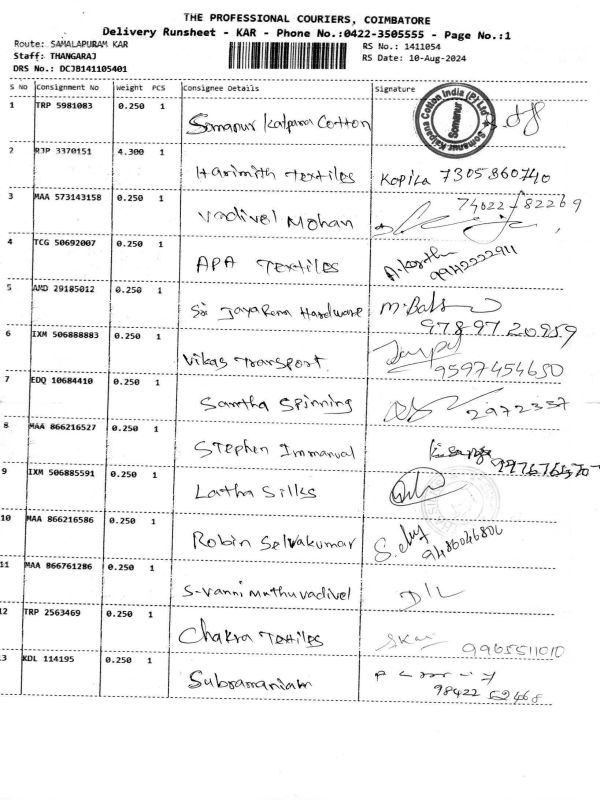 THE PROFESSIONAL COURIERS, COIMBATORE
Delivery Runsheet - KAR - Phone No.:0422-3505555 - Page No.:1
Route: SAMALAPURAM KAR
RS No.: 1411054
Staff: THANGARAJ
RS Date: 10-Aug-2024
DRS No.: DCJB141105401
S No Consignment No Weight PCS Consignee Details Signature
1 TRP 5981083 0.250 1 Somanur Kalpana Cotton
Somanur Kalpana Cotton India (P) Ltd
Somanur
2 RJP 3370151 4.300 1 Harimith Textiles Kopika 7305860740
3 MAA 573143158 0.250 1 Vadivel Mohan 74022-82269
4 TCG 50692007 0.250 1 APA Textiles A.Karthi 99442222911
5 AMD 29185012 0.250 1 Sri JayaRama Hardware 97897 20959
6 IXM 506888883 0.250 1 Vikas Transport 9597454650
7 EDQ 10684410 0.250 1 Santha Spinning 2972337
8 MAA 866216527 0.250 1 Stephen Immanual
9 IXM 506885591 0.250 1 Latha Silks
10 MAA 866216586 0.250 1 Robin Selvakumar 9486046806
11 MAA 866761286 0.250 1 S-Vanni muthuvadivel D/L
12 TRP 2563469 0.250 1 Chakra Textiles 9965511010
13 KDL 114195 0.250 1 Subramaniam 98422 52468